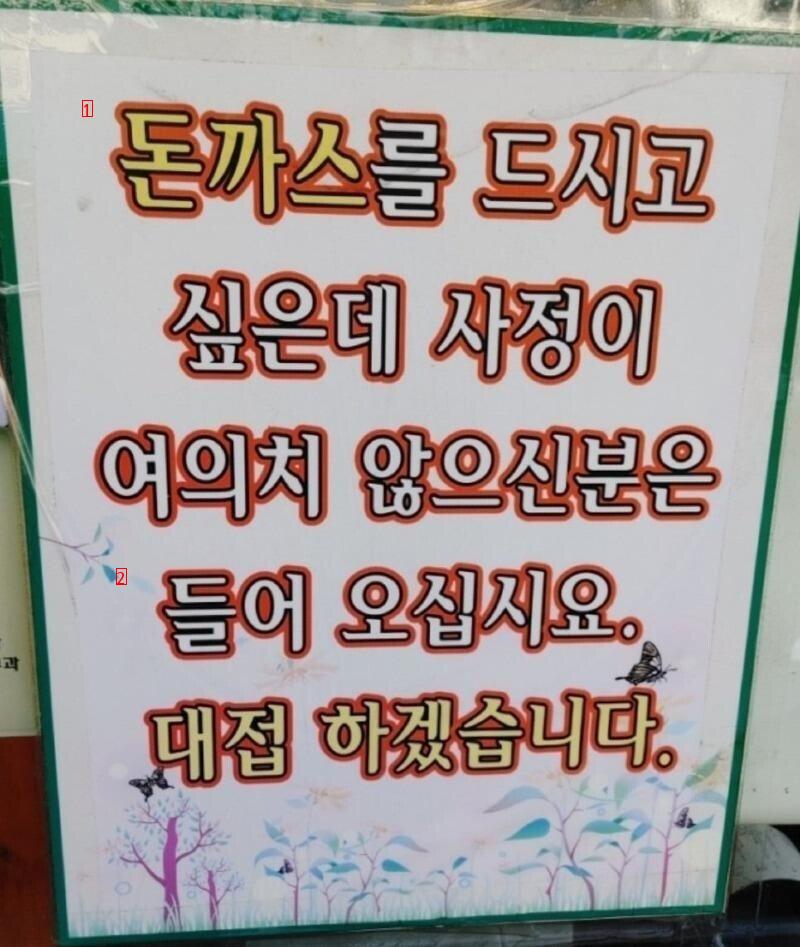 1
돈까스를 드시고
싶은데 사정이
여의치 않으신분은
2
들어 오십시요.
대접 하겠습니다.
과